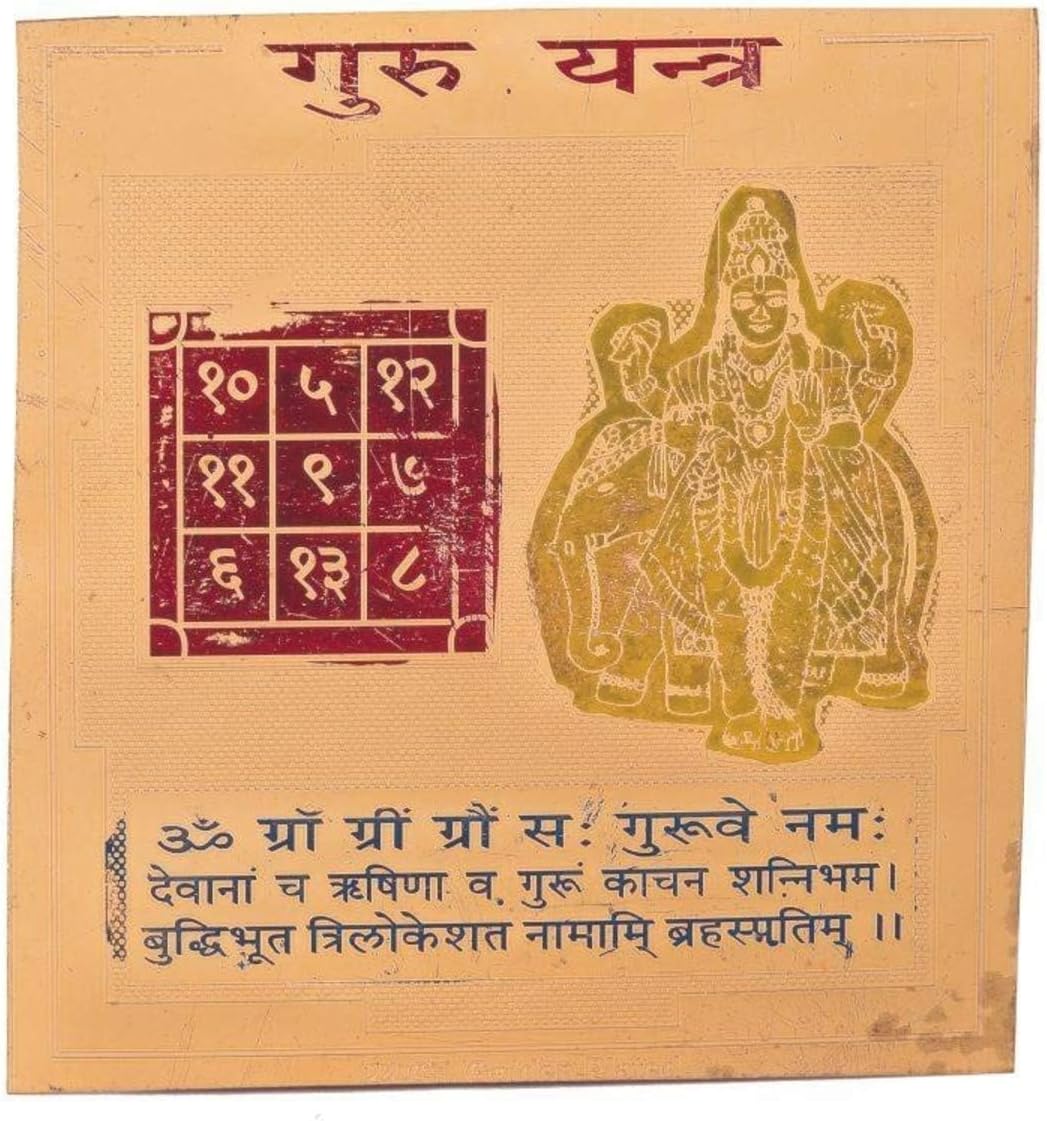 गुरु यन्त्र
१० ५ १२
११ ९ ७
६ १३ ८
ॐ ग्राँ ग्रीं ग्रौं सः गुरूवे नमः
देवानां च ऋषिणा व गुरूं काचन शन्निभम।
बुद्धिभूत त्रिलोकेशत नामामि् ब्रहस्प्रतिम् ।।